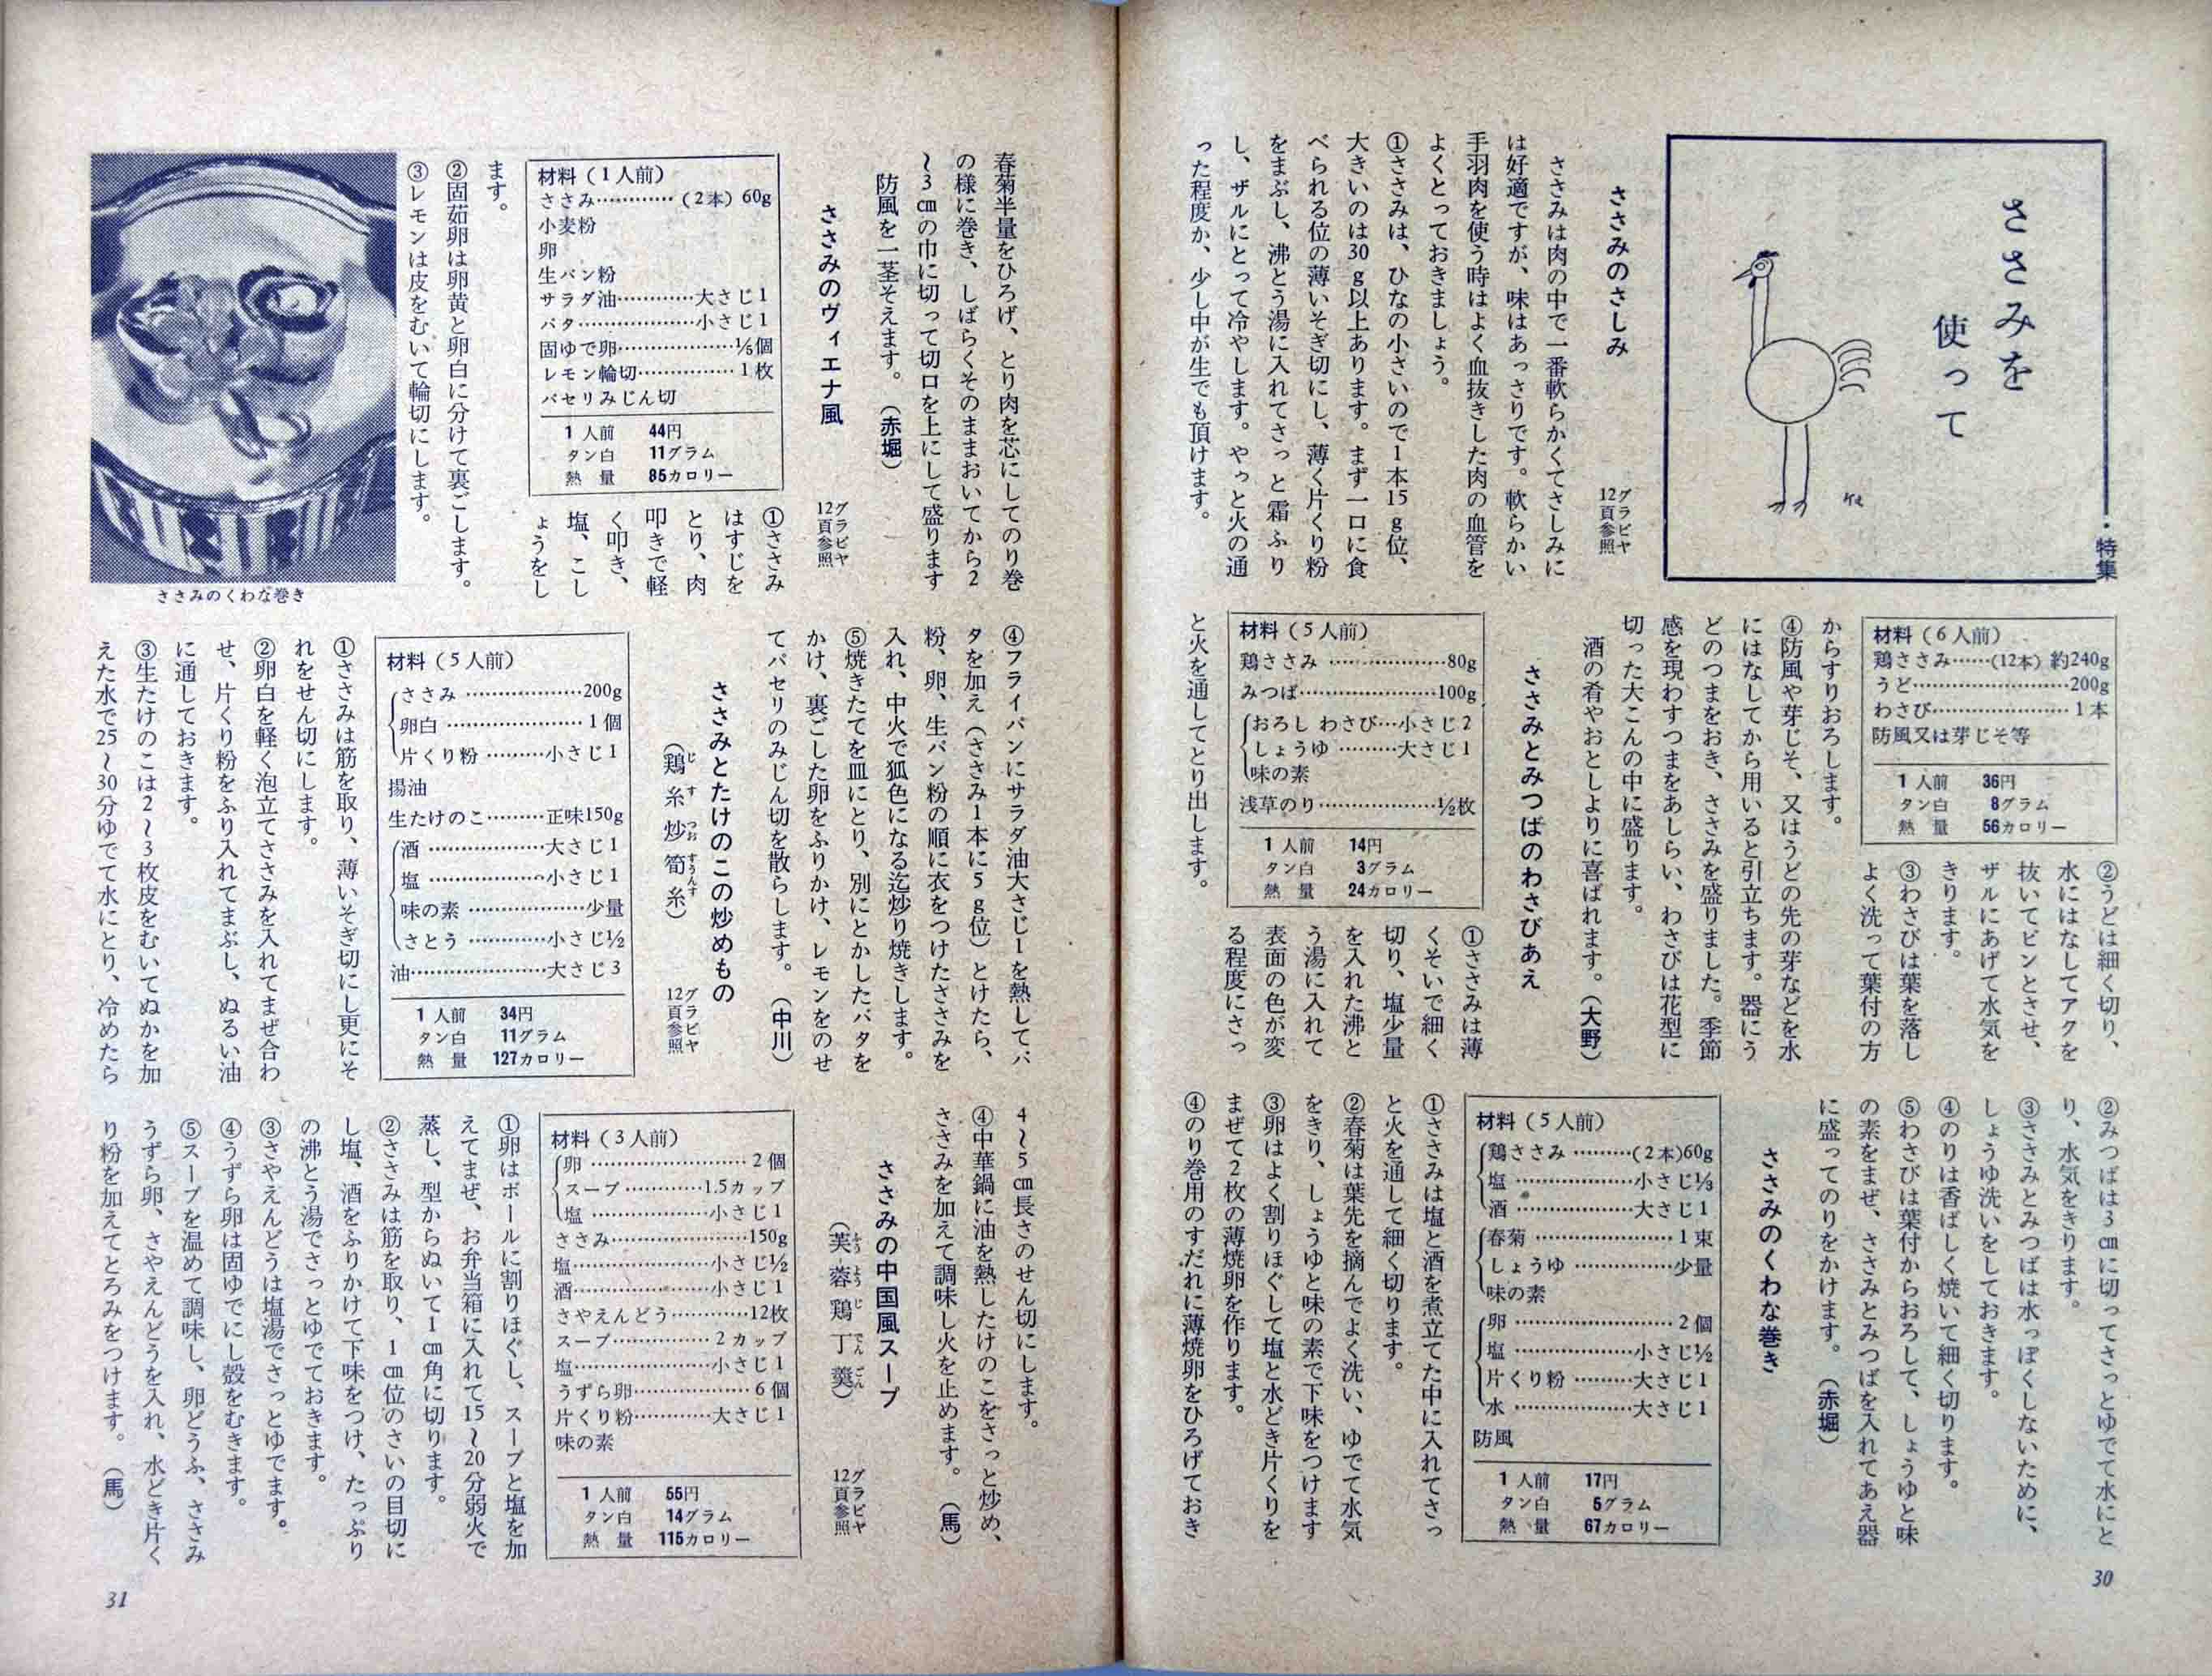 ・特集
ささみを
使って
ささみのさしみ
グラビヤ
12頁参照
ささみは肉の中で一番軟らかくてさしみに
は好適ですが、味はあっさりです。軟らかい
手羽肉を使う時はよく血抜きした肉の血管を
よくとっておきましょう。
①ささみは、ひなの小さいので1本15g位、
大きいのは30g以上あります。まず一口に食
べられる位の薄いそぎ切にし、薄く片くり粉
をまぶし、沸とう湯に入れてさっと霜ふり
し、ザルにとって冷やします。やっと火の通
った程度か、少し中が生でも頂けます。
材料(6人前)
鶏ささみ……(12本)約240g
うど……………………200g
わさび…………………1本
防風又は芽じそ等
1人前 36円
タン白 8グラム
熱量 56カロリー
②うどは細く切り、
水にはなしてアクを
抜いてピンとさせ、
ザルにあげて水気を
きります。
③わさびは葉を落し
よく洗って葉付の方
からすりおろします。
④防風や芽じそ、又はうどの先の芽などを水
にはなしてから用いると引立ちます。器にう
どのつまをおき、ささみを盛りました。季節
感を現わすつまをあしらい、わさびは花型に
切った大こんの中に盛ります。
酒の肴やおとしよりに喜ばれます。(大野)
ささみとみつばのわさびあえ
材料(5人前)
鶏ささみ………………80g
みつば…………………100g
おろしわさび…小さじ2
しょうゆ………大さじ1
味の素
浅草のり………………½枚
1人前 14円
タン白 3グラム
熱量 24カロリー
①ささみは薄
くそいで細く
切り、塩少量
を入れた沸と
う湯に入れて
表面の色が変
る程度にさっ
と火を通してとり出します。
②みつばは3cmに切ってさっとゆでて水にと
り、水気をきります。
③ささみとみつばは水っぽくしないために、
しょうゆ洗いをしておきます。
④のりは香ばしく焼いて細く切ります。
⑤わさびは葉付からおろして、しょうゆと味
の素をまぜ、ささみとみつばを入れてあえ器
に盛ってのりをかけます。(赤堀)
ささみのくわな巻き
材料(5人前)
鶏ささみ………(2本)60g
塩………………小さじ⅓
酒………………大さじ1
春菊……………………1束
しょうゆ……………少量
味の素
卵………………………2個
塩………………小さじ½
片くり粉………大さじ1
水………………大さじ1
防風
1人前 17円
タン白 5グラム
熱量 67カロリー
①ささみは塩と酒を煮立てた中に入れてさっ
と火を通して細く切ります。
②春菊は葉先を摘んでよく洗い、ゆでて水気
をきり、しょうゆと味の素で下味をつけます
③卵はよく割りほぐして塩と水どき片くりを
まぜて2枚の薄焼卵を作ります。
④のり巻用のすだれに薄焼卵をひろげておき
30
春菊半量をひろげ、とり肉を芯にしてのり巻
の様に巻き、しばらくそのままおいてから2
〜3cmの巾に切って切口を上にして盛ります
防風を一茎そえます。(赤堀)
ささみのヴィエナ風
グラビヤ
12頁参照
材料(1人前)
ささみ…………(2本)60g
小麦粉
卵
生パン粉
サラダ油…………大さじ1
バタ………………小さじ1
固ゆで卵………………⅕個
レモン輪切……………1枚
パセリみじん切
1人前 44円
タン白 11グラム
熱量 85カロリー
①ささみ
はすじを
とり、肉
叩きで軽
く叩き、
塩、こし
ょうをし
ます。
②固茹卵は卵黄と卵白に分けて裏ごします。
③レモンは皮をむいて輪切にします。
ささみのくわな巻き
④フライパンにサラダ油大さじ1を熱してバ
タを加え(ささみ1本に5g位)とけたら、
粉、卵、生パン粉の順に衣をつけたささみを
入れ、中火で狐色になる迄炒り焼きします。
⑤焼きたてを皿にとり、別にとかしたバタを
かけ、裏ごした卵をふりかけ、レモンをのせ
てパセリのみじん切を散らします。(中川)
ささみとたけのこの炒めもの
(鶏糸炒筍糸)
じ す つお すうんす
グラビヤ
12頁参照
材料(5人前)
ささみ………………200g
卵白…………………1個
片くり粉………小さじ1
揚油
生たけのこ………正味150g
酒………………大さじ1
塩………………小さじ1
味の素………………少量
さとう…………小さじ½
油…………………大さじ3
1人前 34円
タン白 11グラム
熱量 127カロリー
①ささみは筋を取り、薄いそぎ切にし更にそ
れをせん切にします。
②卵白を軽く泡立てささみを入れてまぜ合わ
せ、片くり粉をふり入れてまぶし、ぬるい油
に通しておきます。
③生たけのこは2〜3枚皮をむいてぬかを加
えた水で25〜30分ゆでて水にとり、冷めたら
4〜5cm長さのせん切にします。
④中華鍋に油を熱したけのこをさっと炒め、
ささみを加えて調味し火を止めます。(馬)
ささみの中国風スープ
(芙蓉鶏丁羹)
ふう よう じ でん ごん
グラビヤ
12頁参照
材料(3人前)
卵……………………2個
スープ…………1.5カップ
塩………………小さじ1
ささみ…………………150g
塩…………………小さじ½
酒…………………小さじ1
さやえんどう…………12枚
スープ……………2カップ
塩…………………小さじ1
うずら卵………………6個
片くり粉…………大さじ1
味の素
1人前 55円
タン白 14グラム
熱量 115カロリー
①卵はボールに割りほぐし、スープと塩を加
えてまぜ、お弁当箱に入れて15〜20分弱火で
蒸し、型からぬいて1cm角に切ります。
②ささみは筋を取り、1cm位のさいの目切に
し塩、酒をふりかけて下味をつけ、たっぷり
の沸とう湯でさっとゆでておきます。
③さやえんどうは塩湯でさっとゆでます。
④うずら卵は固ゆでにし殻をむきます。
⑤スープを温めて調味し、卵どうふ、ささみ
うずら卵、さやえんどうを入れ、水どき片く
り粉を加えてとろみをつけます。(馬)
31